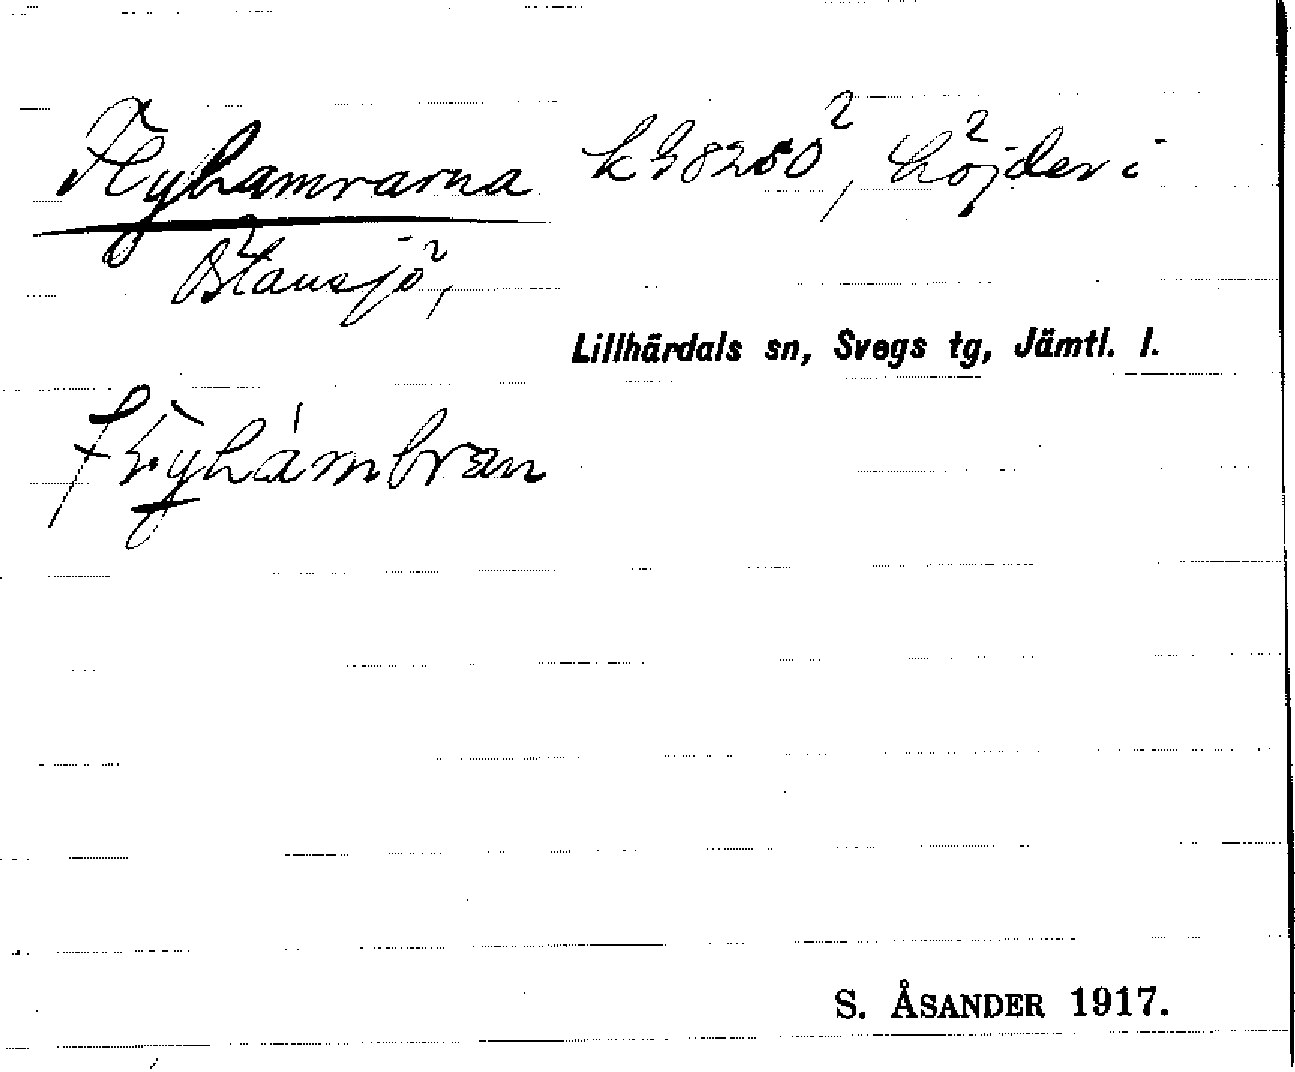 Flyhamrarna k38250, höjder i
Östansjö,
Lillhärdals sn, Svegs tg, Jämtl. l.
S. ÅSANDER 1917.